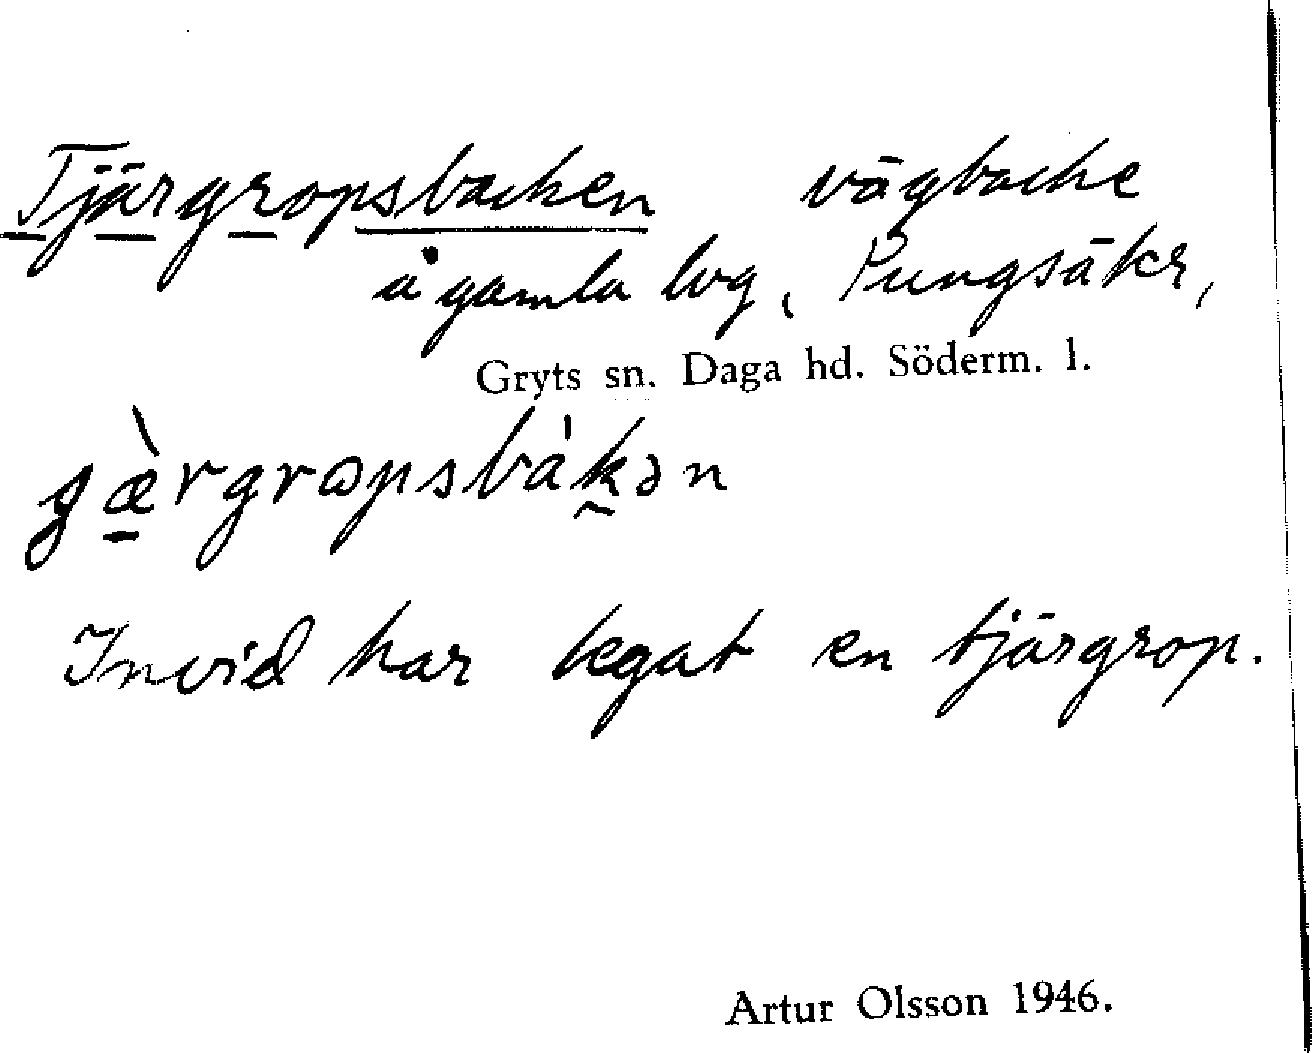 Tjärgropsbacken vägbacke
å gamla lvg, Pungsäkr,
Gryts sn. Daga hd. Söderm. l.
gæ̀rgropsbákən
Invid har legat en tjärgrop.
Artur Olsson 1946.